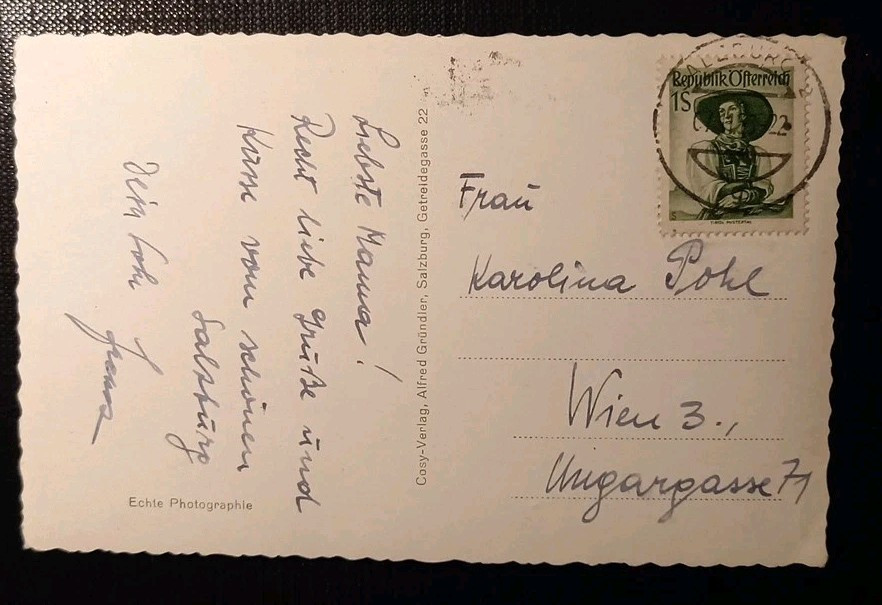 Liebste Mama!
Recht liebe Grüße und
Küsse vom schönen
Salzburg
Dein Sohn
Echte Photographie
Cosy-Verlag, Alfred Gründler, Salzburg, Getreidegasse 22
SALZBURG 2
22
Republik Österreich
1S
TIROL PUSTERTAL
Frau
Karolina Pohl
Wien 3.,
Ungargasse 71